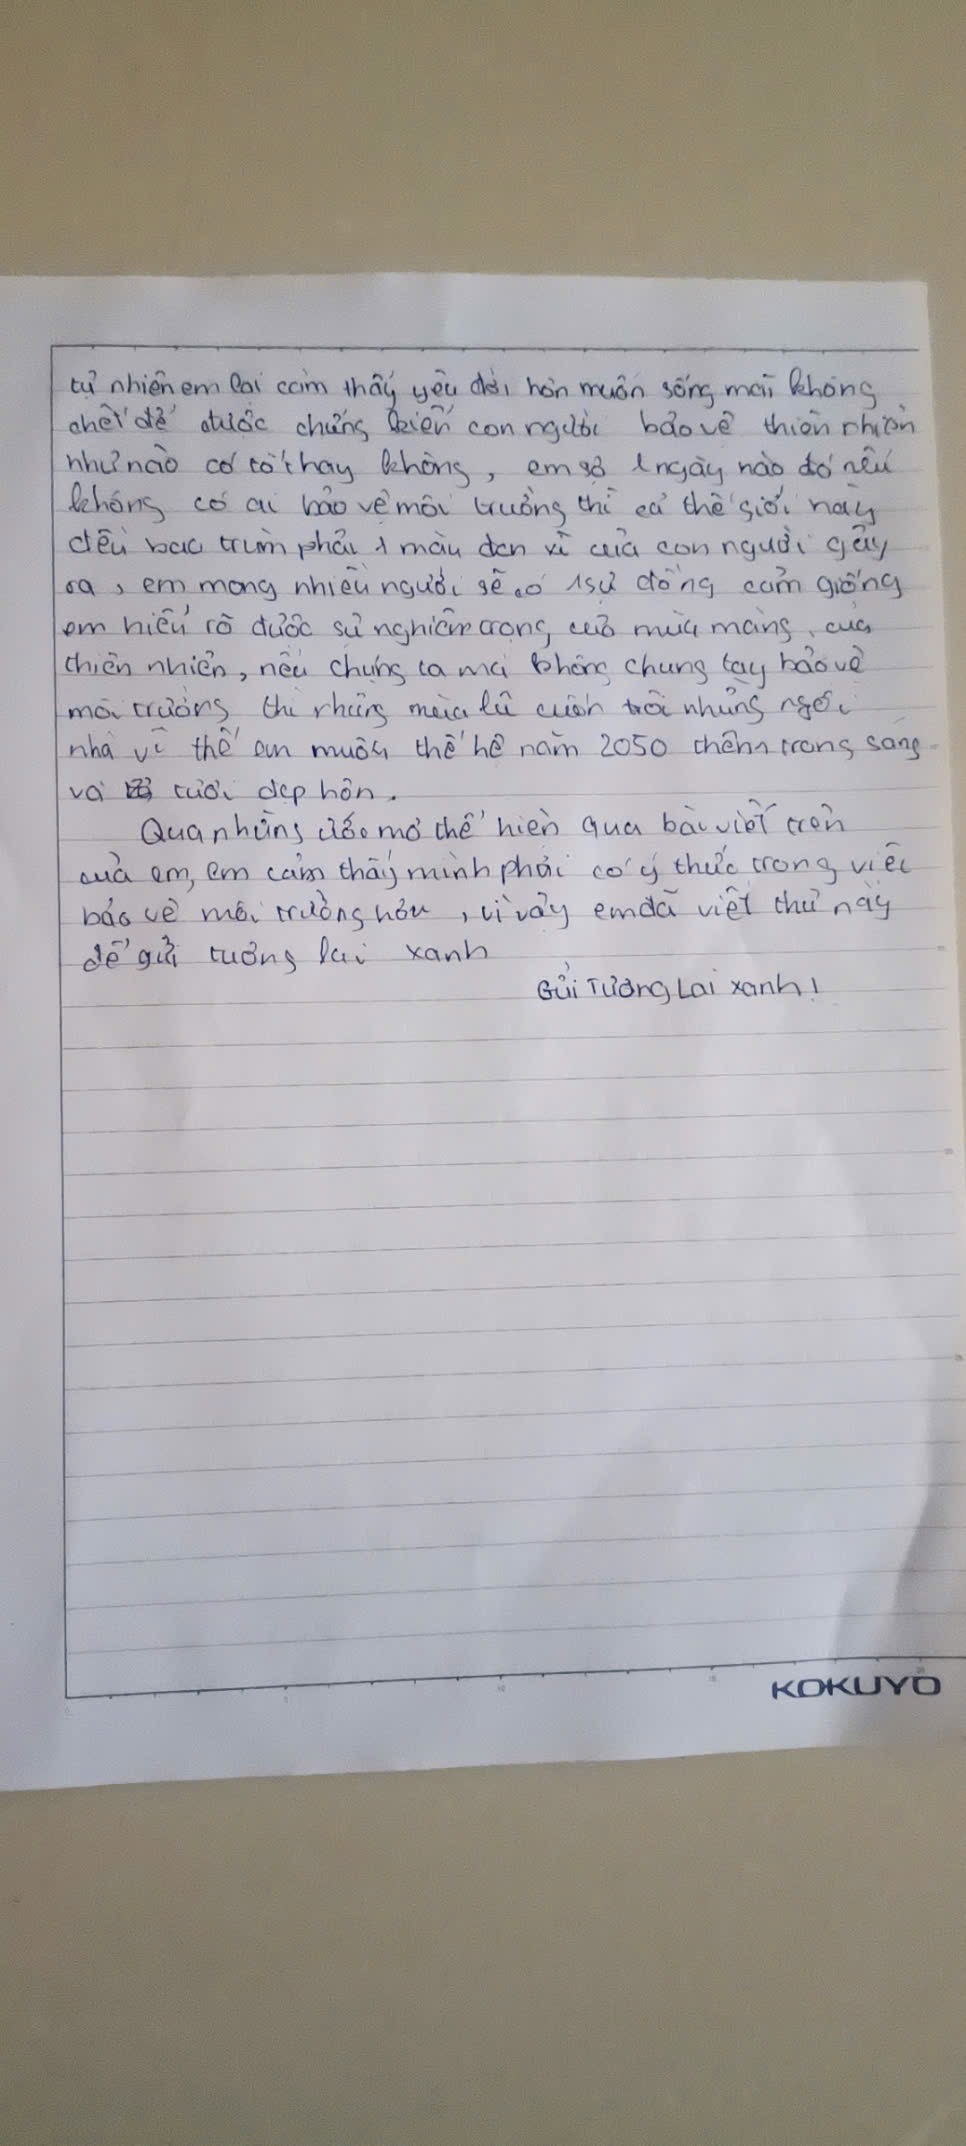 tự nhiên em lại cảm thấy yêu đời hơn muốn sống mãi không
chết để được chứng kiến con người bảo vệ thiên nhiên
như nào có tốt hay không, em sợ 1 ngày nào đó nếu
không có ai bảo vệ môi trường thì cả thế giới này
đều bao trùm phải 1 màu đen vì của con người gây
ra, em mong nhiều người sẽ có 1 sự đồng cảm giống
em hiểu rõ được sự nghiêm trọng của mùa màng, của
thiên nhiên, nếu chúng ta mà không chung tay bảo vệ
môi trường thì những mùa lũ cuốn trôi những ngôi
nhà vì thế em muốn thế hệ năm 2050 thêm trong sáng
và tươi đẹp hơn.
Qua những ước mơ thể hiện qua bài viết trên
của em, em cảm thấy mình phải có ý thức trong việc
bảo vệ môi trường hơn, vì vậy em đã viết thư này
để gửi tương lai xanh
Gửi Tương Lai xanh!
KOKUYO